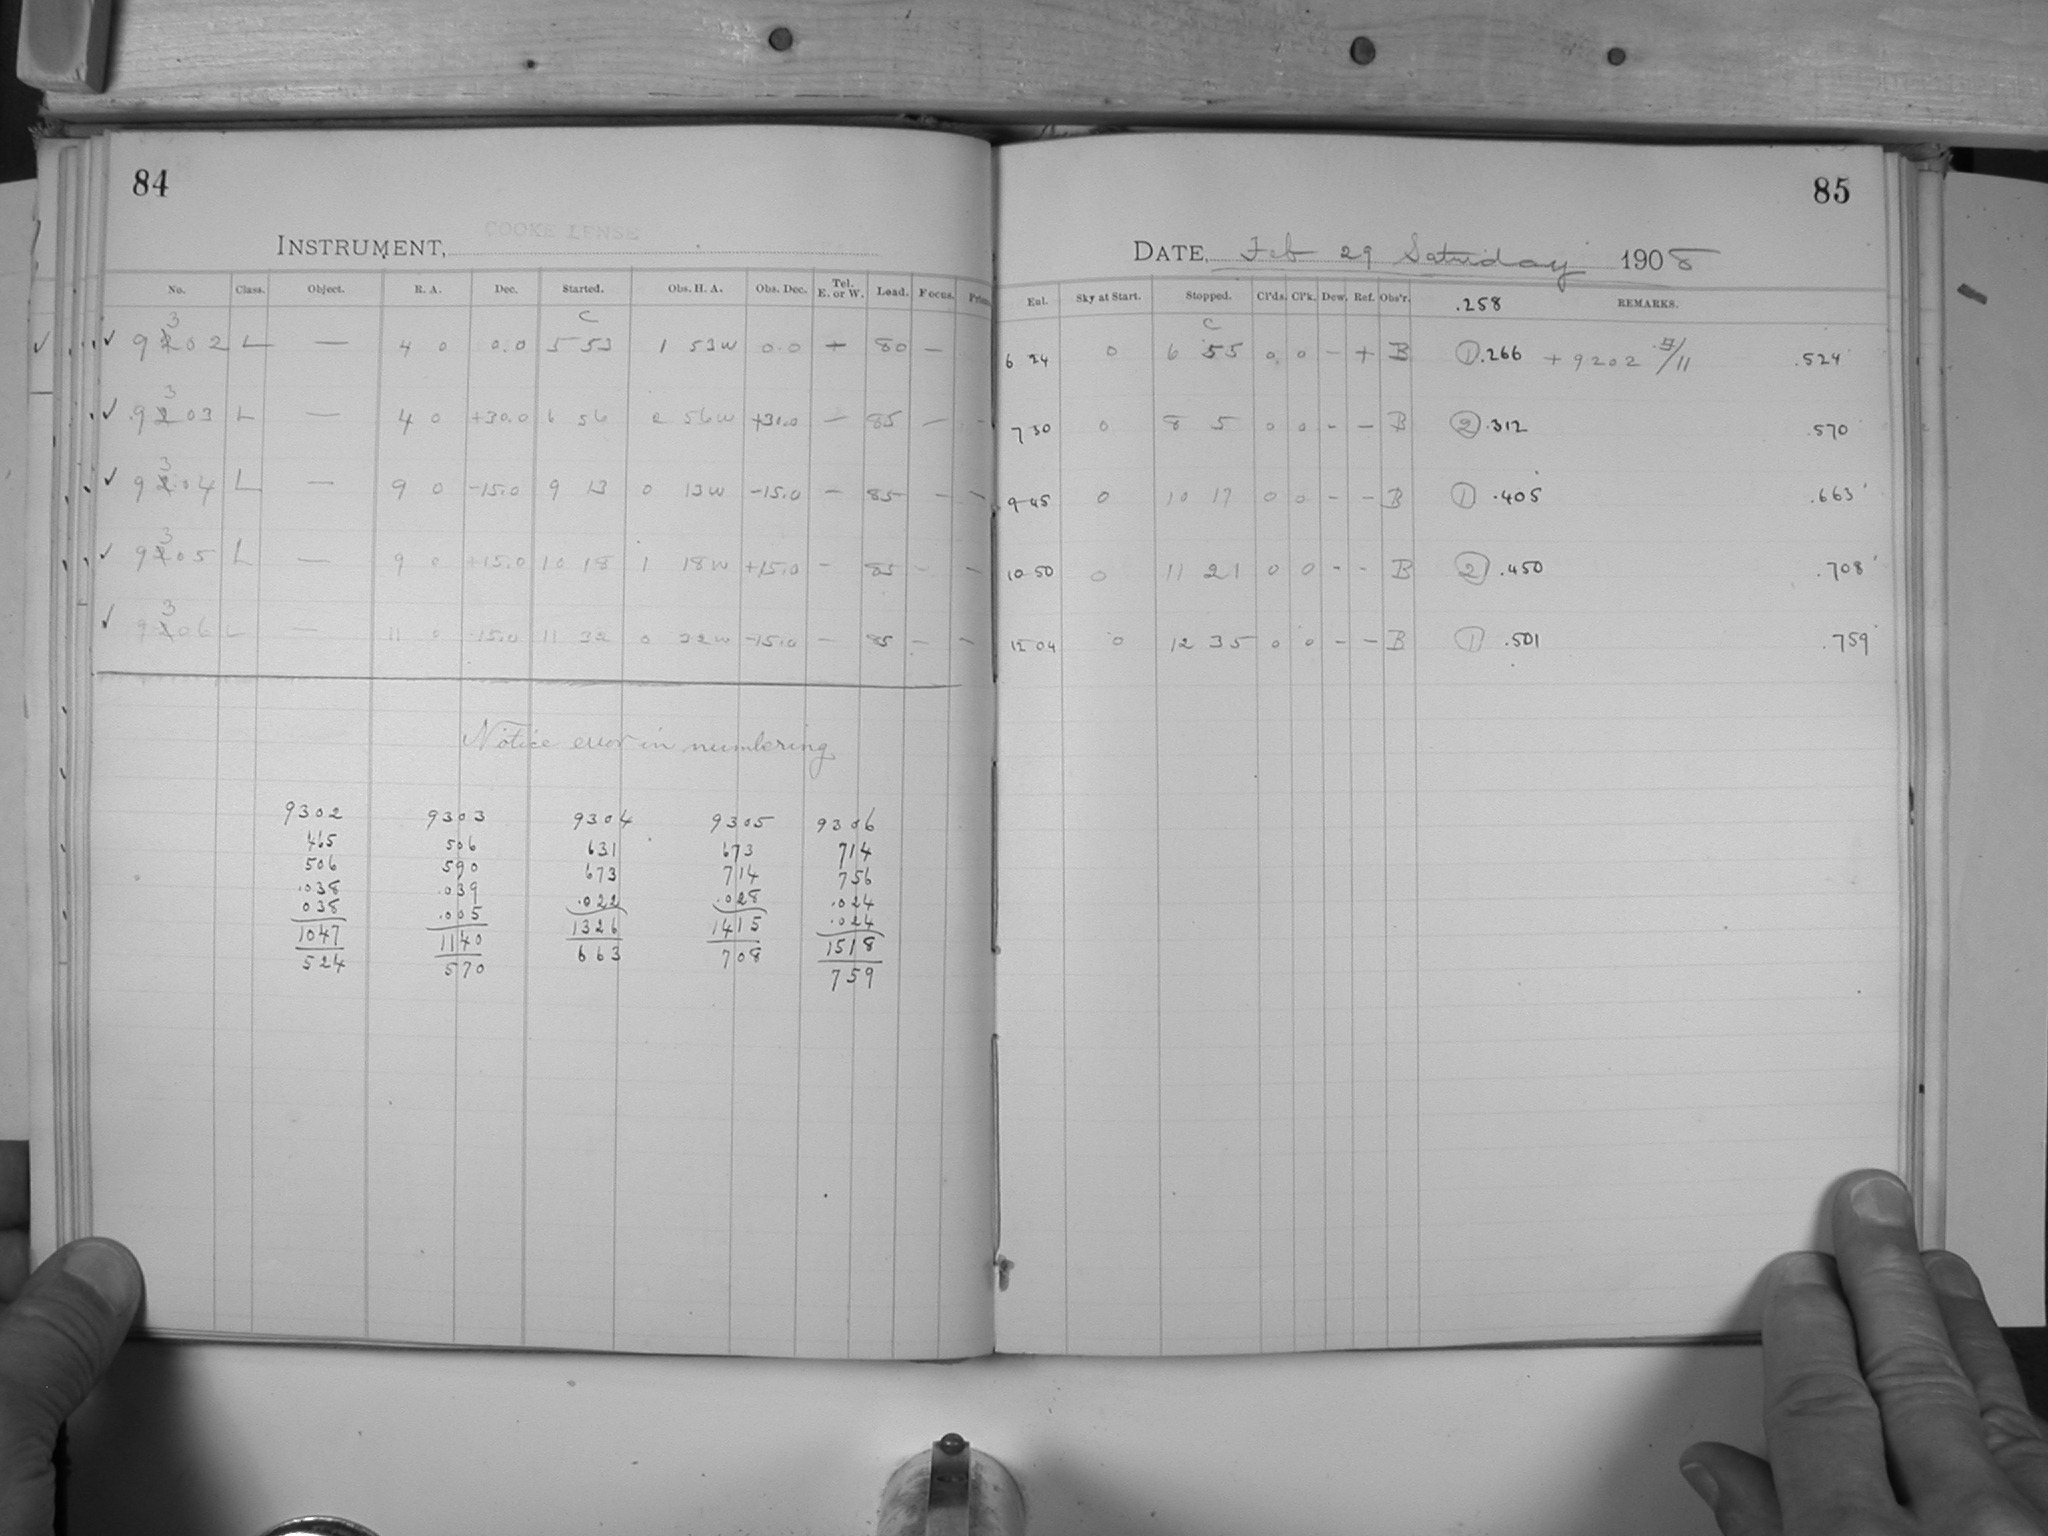 84
INSTRUMENT, COOKE LENSE
No. Class. Object. R. A. Dec. Started. Obs. H. A. Obs. Dec. Tel. E. or W. Load. Focus. Prism
3 C
✓ ✓ 9202 L — 4 0 0.0 5 53 1 53W 0.0 + 80 —
3
✓ 9203 L — 4 0 +30.0 6 56 2 56W +30.0 — 85 — -
3
✓ 9204 L — 9 0 -15.0 9 13 0 13W -15.0 — 85 — -
3
✓ 9205 L — 9 0 +15.0 10 18 1 18W +15.0 - 85 - -
3
✓ 9206 L — 11 0 -15.0 11 32 0 32W -15.0 — 85 — -
Notice error in numbering
9302 9303 9304 9305 9306
465 506 631 673 714
506 590 673 714 756
.038 .039 .022 .028 .024
038 .005 1326 1415 .024
1047 1140 663 708 1518
524 570 759
85
DATE, Feb 29 Saturday 1908
Exl. Sky at Start. Stopped. Cl'ds. Cl'k. Dew. Ref. Obs'r. .258 REMARKS.
C
6 24 0 6 55 0 0 - + B ① .266 + 9202 /11 .524
7 30 0 8 5 0 0 - - B ② .312 .570
9 45 0 10 17 0 0 - - B ① .405 .663
10 50 0 11 21 0 0 - - B ② .450 .708
12 04 0 12 35 0 0 - - B ① .501 .759